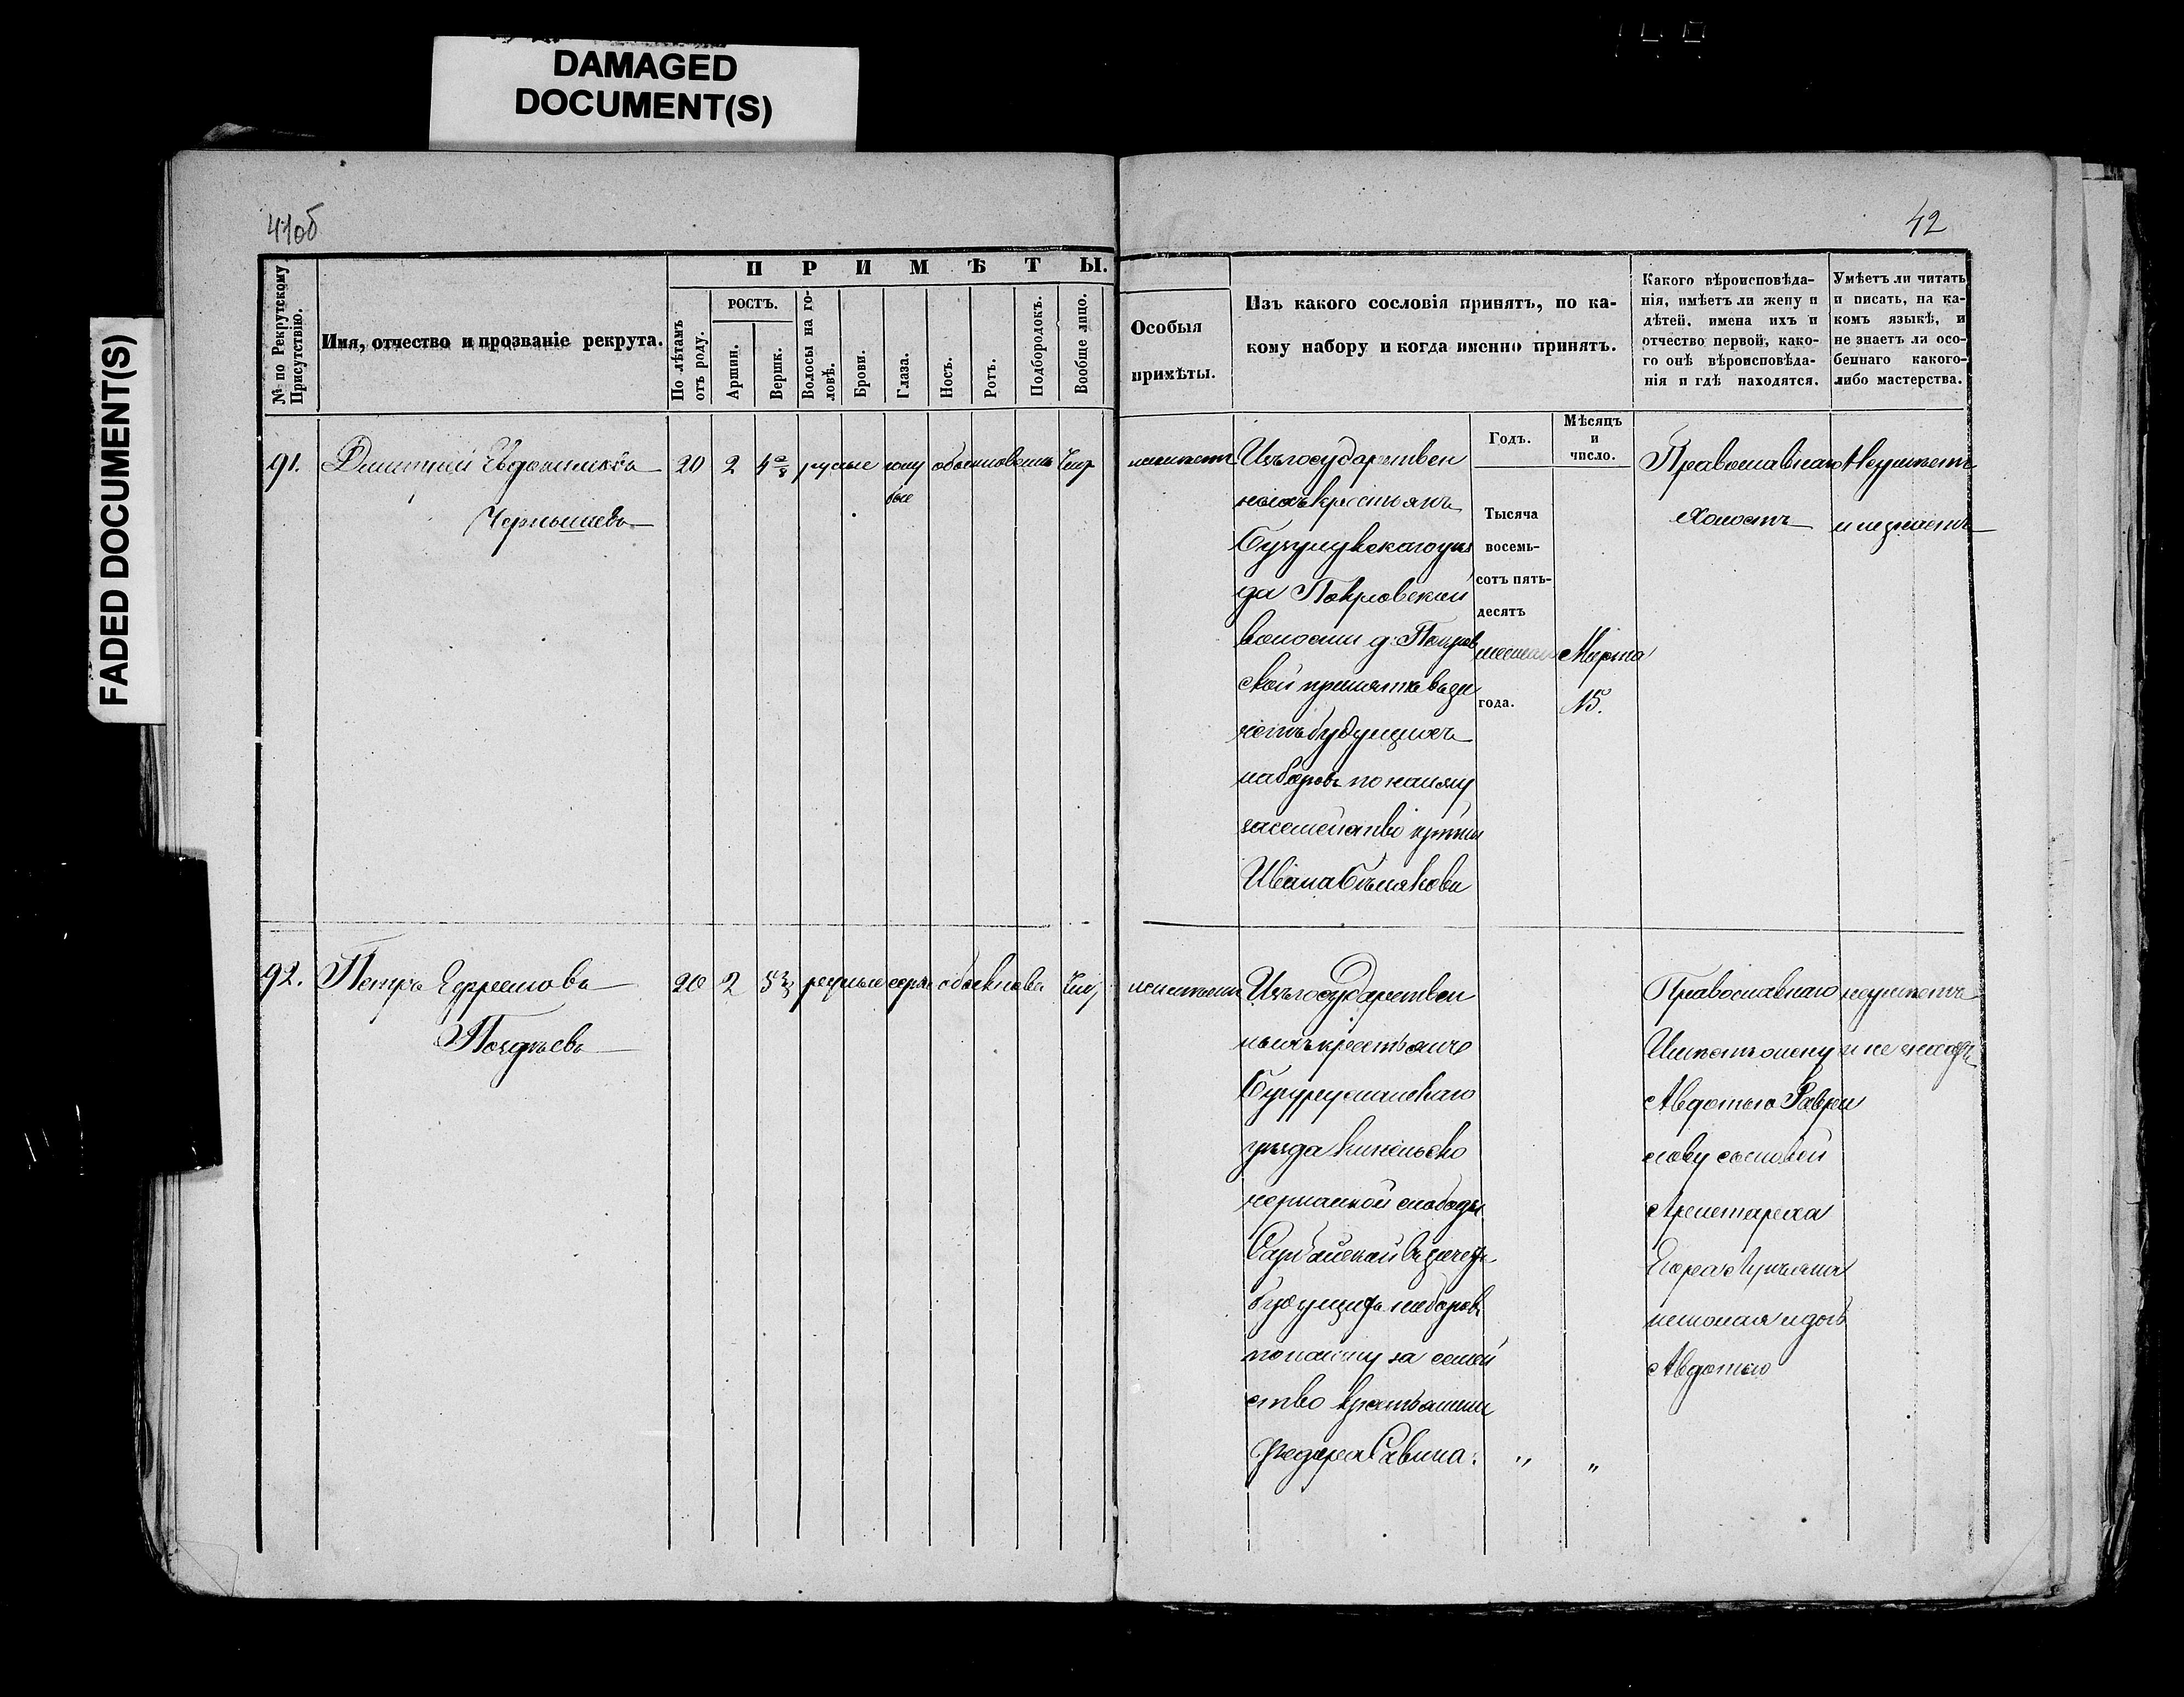 DAMAGED
DOCUMENT(S)
FADED DOCUMENT(S)
41об
42
№ по Рекрутскому Присутствію.
Имя, отчество и прозваніе рекрута.
ПРИМѢТЫ.
По лѣтамъ отъ роду.
РОСТЪ.
Аршин.
Вершк.
Волосы на головѣ.
Брови.
Глаза.
Носъ.
Ротъ.
Подбородокъ.
Вообще лицо.
Особыя
примѣты.
Изъ какого сословія принятъ, по ка-
кому набору и когда именно принятъ.
Какого вѣроисповѣда-
нія, имѣетъ ли жену и
дѣтей, имена ихъ и
отчество первой, како-
го онѣ вѣроисповѣда-
нія и гдѣ находятся.
Умѣетъ ли читать
и писать, на ка-
комъ языкѣ, и
не знаетъ ли осо-
беннаго какого-
либо мастерства.
Годъ.
Мѣсяцъ
и
число.
91.
Дмитрий Евдокимовъ
Чернышевъ
20
2
русые
голу
бые
обыкновен
чист
неимеетъ
Изъ государствен
ныхъ крестьянъ
Бузулукского уѣз
да Покровской
волости д. Покров
ской принятъ въ за
четъ будущихъ
наборовъ по найму
за семейство
Ивана
Тысяча
восемь-
сотъ пять-
десятъ
шестаго
года.
Марта
15.
Православнаго
холостъ
Неумеетъ
и незнаетъ
92.
Петръ Ефремовъ
Поздѣевъ
20
2
русые
серы
обыкнове
чис
неимеетъ
Изъ государствен
ныхъ крестьянъ
Бугурусланскаго
уѣзда Кинельско
черкаской слободы
Сарбайской въ зачетъ
будущихъ наборовъ
по найму за семей
ство крестьянина
Федора Савина.
„
„
Православнаго
Имеетъ жену
Авдотью
сыновей
Аристарха
Егора Лукьяна
николая и дочь
Авдотью
неумеетъ
и не знаетъ